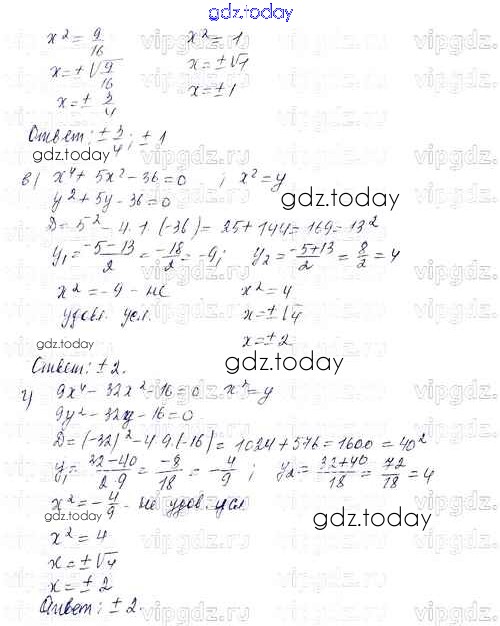 gdz.today
x² = 9/16    x² = 1
x = ± √9/16    x = ± √1
x = ± 3/4    x = ± 1
Ответ: ± 3/4; ± 1
gdz.today
в) x⁴ + 5x² - 36 = 0 ; x² = y
y² + 5y - 36 = 0
gdz.today
D = 5² - 4·1·(-36) = 25 + 144 = 169 = 13²
y₁ = -5-13/2 = -18/2 = -9;    y₂ = -5+13/2 = 8/2 = 4
x² = -9 - не    x² = 4
удовл. усл.    x = ± √4
x = ± 2
Ответ: ± 2.
gdz.today
г) 9x⁴ - 32x² - 16 = 0    x² = y
9y² - 32y - 16 = 0
D = (-32)² - 4·9·(-16) = 1024 + 576 = 1600 = 40²
y₁ = 32-40/2·9 = -8/18 = -4/9 ;    y₂ = 32+40/18 = 72/18 = 4
x² = -4/9 - не удов. усл
gdz.today
gdz.today
x² = 4
x = ± √4
x = ± 2
Ответ: ± 2.
vipgdz.ru